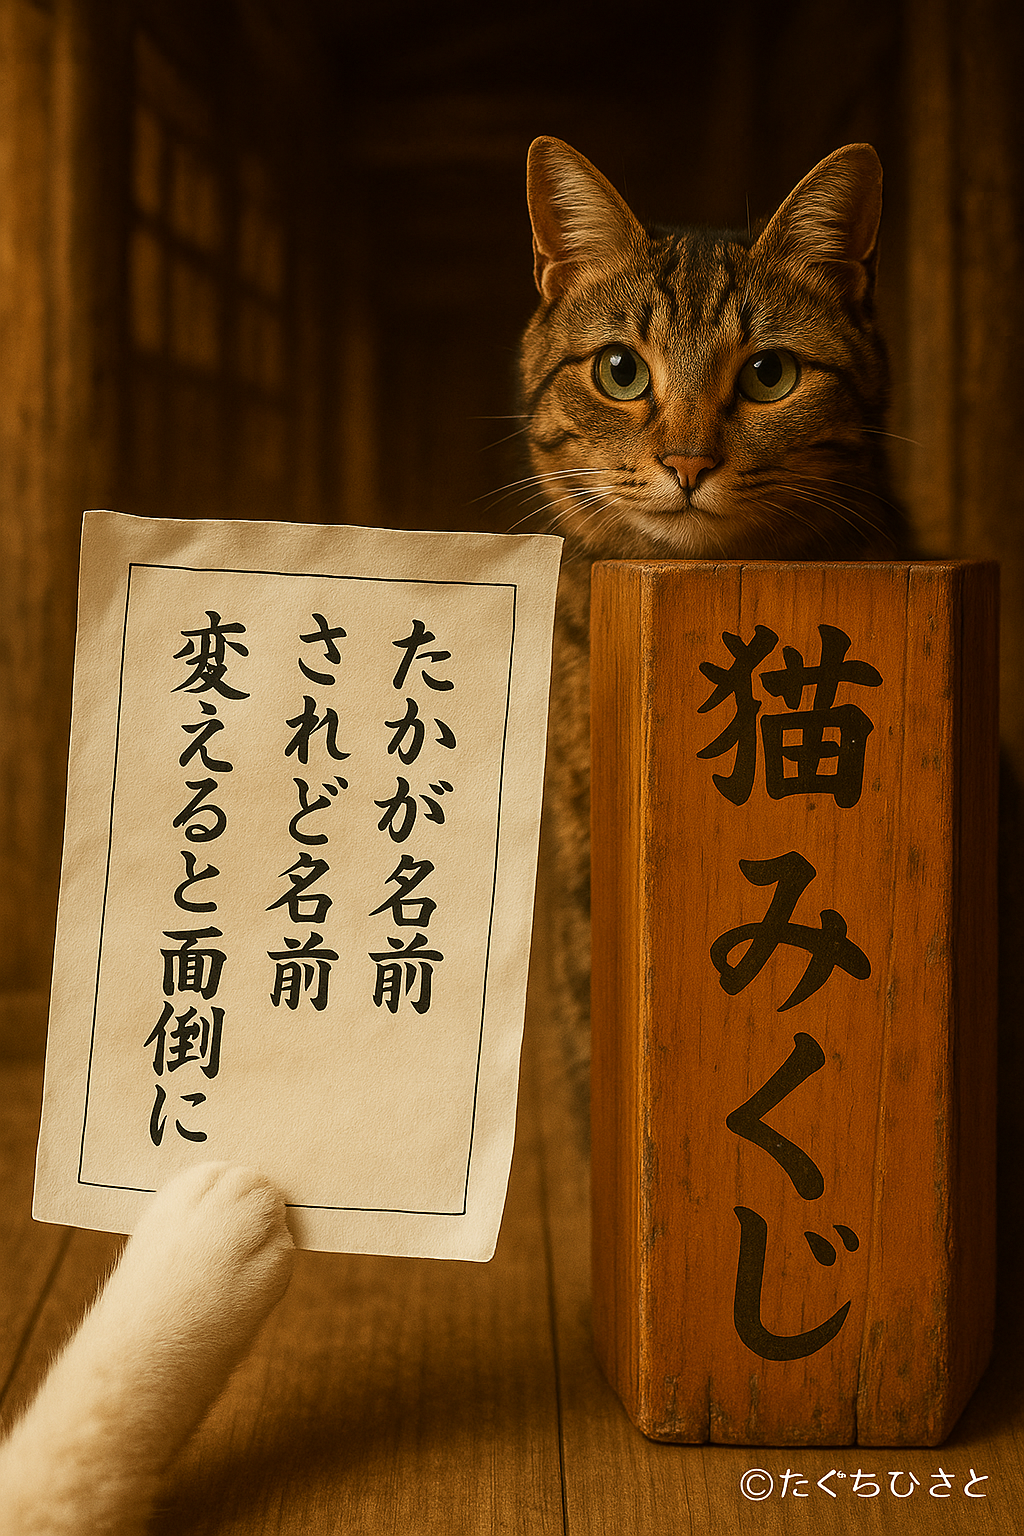 たかが名前
されど名前
変えると面倒に
猫みくじ
©たぐちひさと